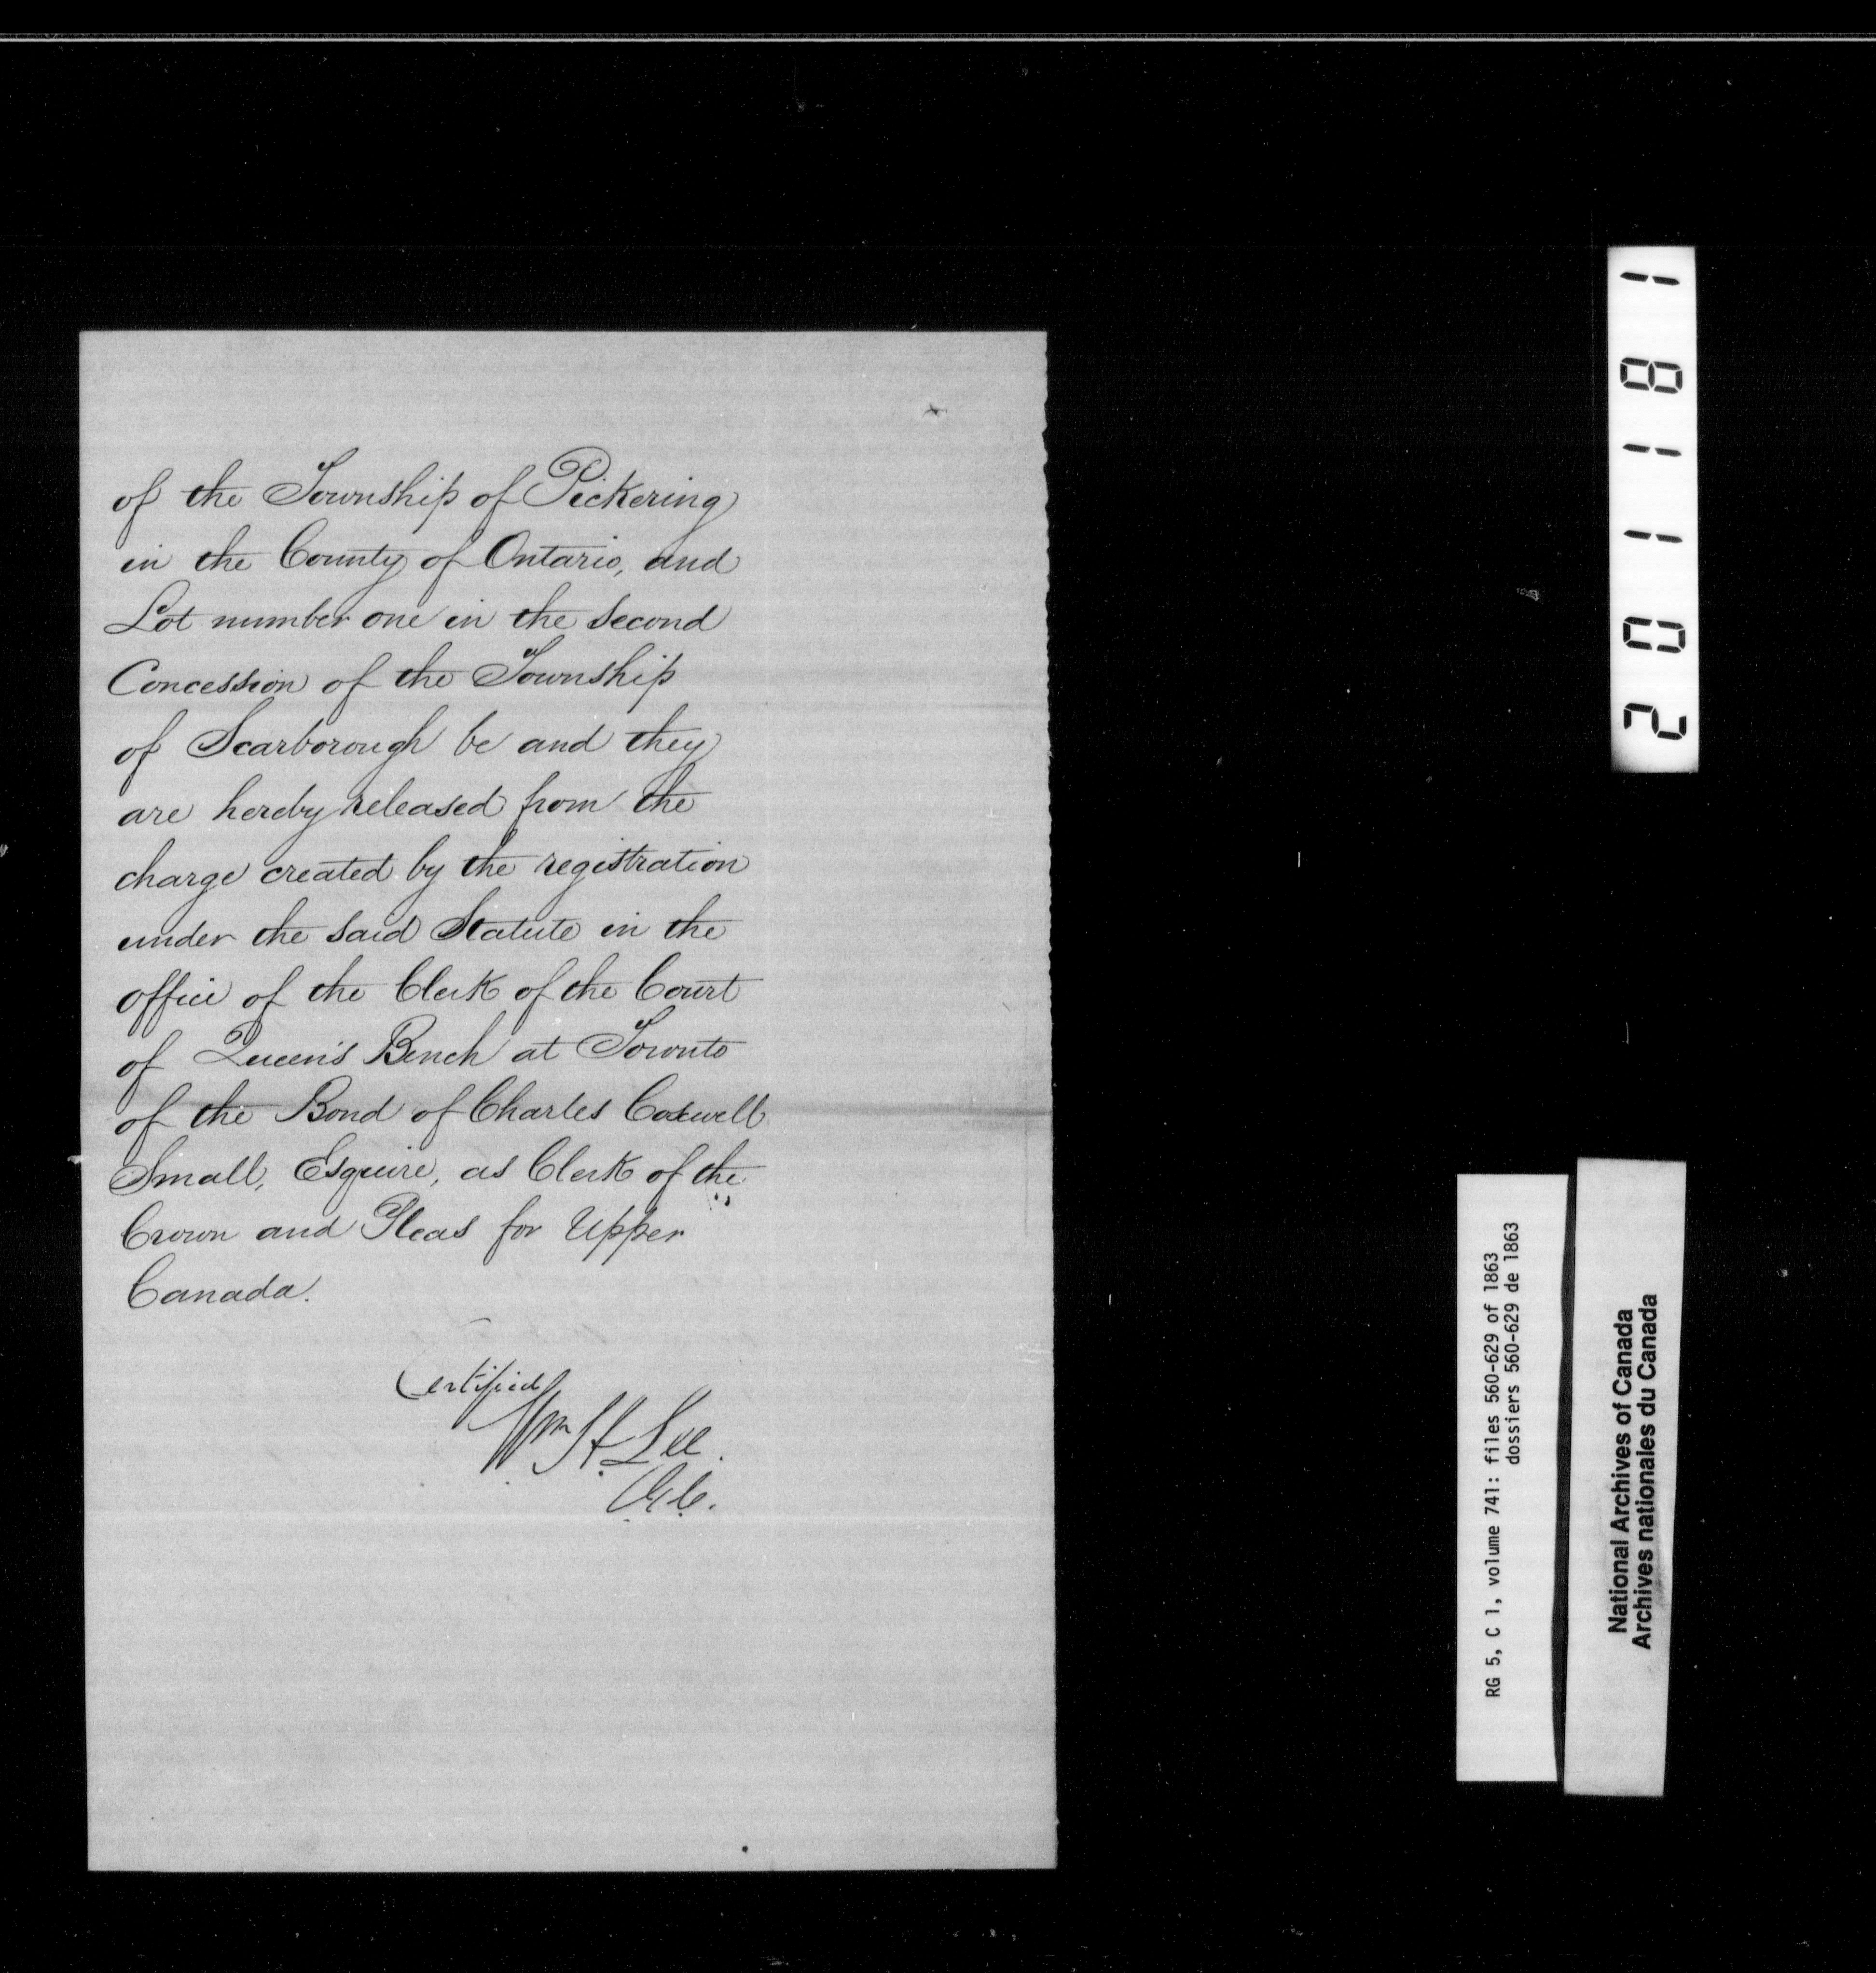 of the Township of Pickering
in the County of Ontario, and
Lot number one in the second
Concession of the Township
of Scarborough be and they
are hereby released from the
charge created by the registration
under the said Statute in the
office of the Clerk of the Court
of Queen's Bench at Toronto
of the Bond of Charles Coxwell
Small, Esquire, as Clerk of the
Crown and Pleas for Upper
Canada.
Certified
Wm H. Lee.
201181
RG 5, C 1, volume 741: files 560-629 of 1863
dossiers 560-629 de 1863
National Archives of Canada
Archives nationales du Canada